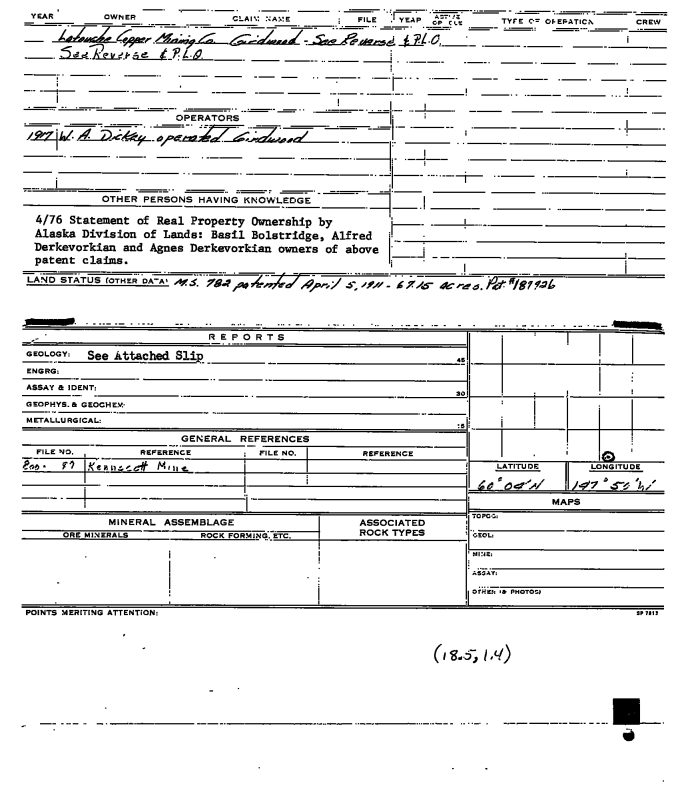 YEAR OWNER CLAIM NAME FILE YEAR ACTIVE OR CLE TYPE OF OPERATION CREW
Latouche Copper Mining Co. Girdwood - See Reverse & P.L.O.
See Reverse & P.L.O.
OPERATORS
1917 W. A. Dickey operated Girdwood
OTHER PERSONS HAVING KNOWLEDGE
4/76 Statement of Real Property Ownership by
Alaska Division of Lands: Basil Bolstridge, Alfred
Derkevorkian and Agnes Derkevorkian owners of above
patent claims.
LAND STATUS (OTHER DATA) M.S. 782 patented April 5, 1911 - 67.15 acres. Pat #187926
REPORTS
GEOLOGY: See Attached Slip 45
ENGRG:
ASSAY & IDENT: 30
GEOPHYS. & GEOCHEM:
METALLURGICAL: 15
GENERAL REFERENCES
FILE NO. REFERENCE FILE NO. REFERENCE
87 Kennecott Mine
LATITUDE LONGITUDE
60° 04' N 147° 50' W
MAPS
MINERAL ASSEMBLAGE ASSOCIATED ROCK TYPES
ORE MINERALS ROCK FORMING, ETC.
TOPOG:
GEOL:
MINE:
ASSAY:
OTHER (& PHOTOS)
POINTS MERITING ATTENTION: SP 7813
(18.5, 1.4)